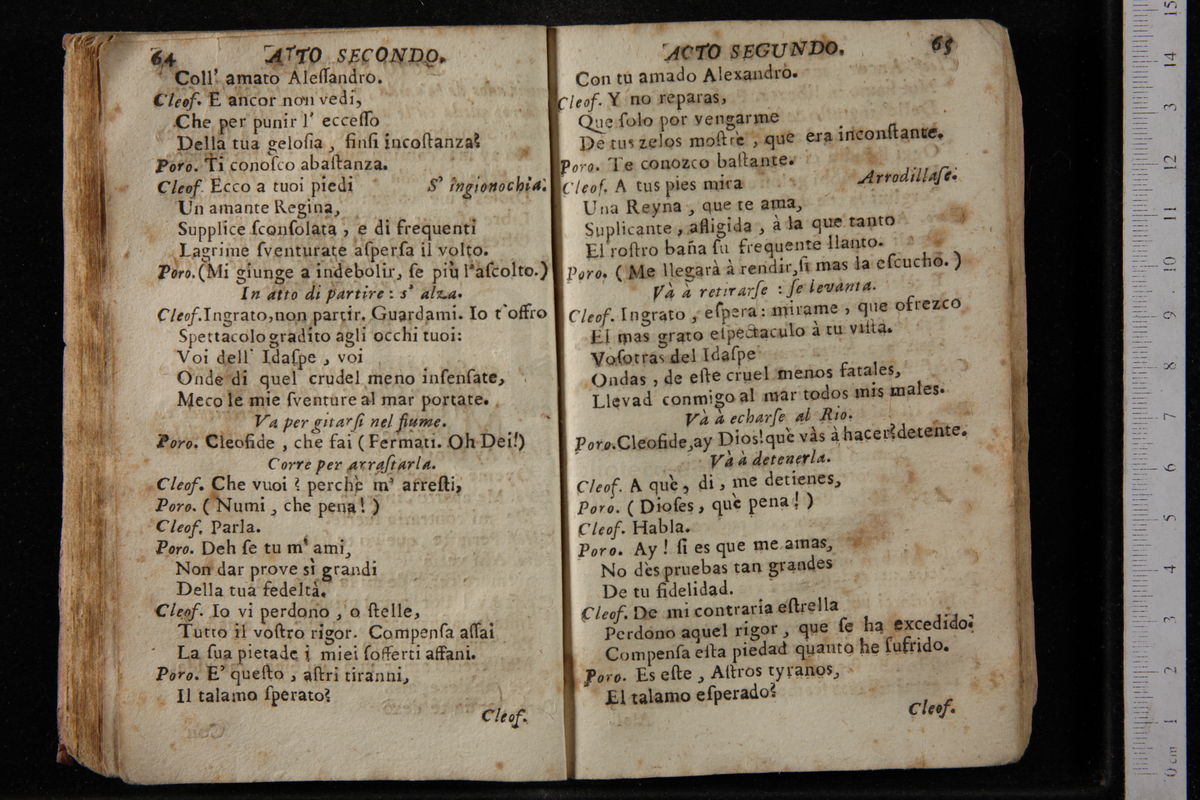 64 ATTO SECONDO.
Coll' amato Aleſſandro.
Cleof. E ancor non vedi,
Che per punir l' ecceſſo
Della tua geloſia, finſi incoſtanza?
Poro. Ti conoſco abaſtanza.
Cleof. Ecco a tuoi piedi S' ingionochia.
Un amante Regina,
Supplice ſconſolata, e di frequenti
Lagrime ſventurate aſperſa il volto.
Poro. (Mi giunge a indebolir, ſe più l'aſcolto.)
In atto di partire: s' alza.
Cleof. Ingrato, non partir. Guardami. Io t'offro
Spettacolo gradito agli occhi tuoi:
Voi dell' Idaſpe, voi
Onde di quel crudel meno inſenſate,
Meco le mie ſventure al mar portate.
Va per gitarſi nel fiume.
Poro. Cleofide, che fai (Fermati. Oh Dei!)
Corre per arraſtarla.
Cleof. Che vuoi? perchè m' arreſti,
Poro. (Numi, che pena!)
Cleof. Parla.
Poro. Deh ſe tu m' ami,
Non dar prove sì grandi
Della tua fedeltà.
Cleof. Io vi perdono, o ſtelle,
Tutto il voſtro rigor. Compenſa aſſai
La ſua pietade i miei ſofferti affani.
Poro. E' queſto, aſtri tiranni,
Il talamo ſperato?
Cleof.
ACTO SEGUNDO. 65
Con tu amado Alexandro.
Cleof. Y no reparas,
Que ſolo por vengarme
De tus zelos moſtrè, que era inconſtante.
Poro. Te conozco baſtante.
Cleof. A tus pies mira Arrodillaſe.
Una Reyna, que te ama,
Suplicante, afligida, à la que tanto
El roſtro baña ſu frequente llanto.
Poro. (Me llegarà à rendir, ſi mas la eſcucho.)
Và à retirarſe: ſe levanta.
Cleof. Ingrato, eſpera: mirame, que ofrezco
El mas grato eſpectaculo à tu viſta.
Voſotras del Idaſpe
Ondas, de eſte cruel menos fatales,
Llevad conmigo al mar todos mis males.
Và à echarſe al Rio.
Poro. Cleofide, ay Dios! què vàs à hacer? detente.
Và à detenerla.
Cleof. A què, di, me detienes,
Poro. (Dioſes, què pena!)
Cleof. Habla.
Poro. Ay! ſi es que me amas,
No dès pruebas tan grandes
De tu fidelidad.
Cleof. De mi contraria eſtrella
Perdono aquel rigor, que ſe ha excedido:
Compenſa eſta piedad quanto he ſufrido.
Poro. Es eſte, Aſtros tyranos,
El talamo eſperado?
Cleof.
0 cm 1 2 3 4 5 6 7 8 9 10 11 12 3 14 15